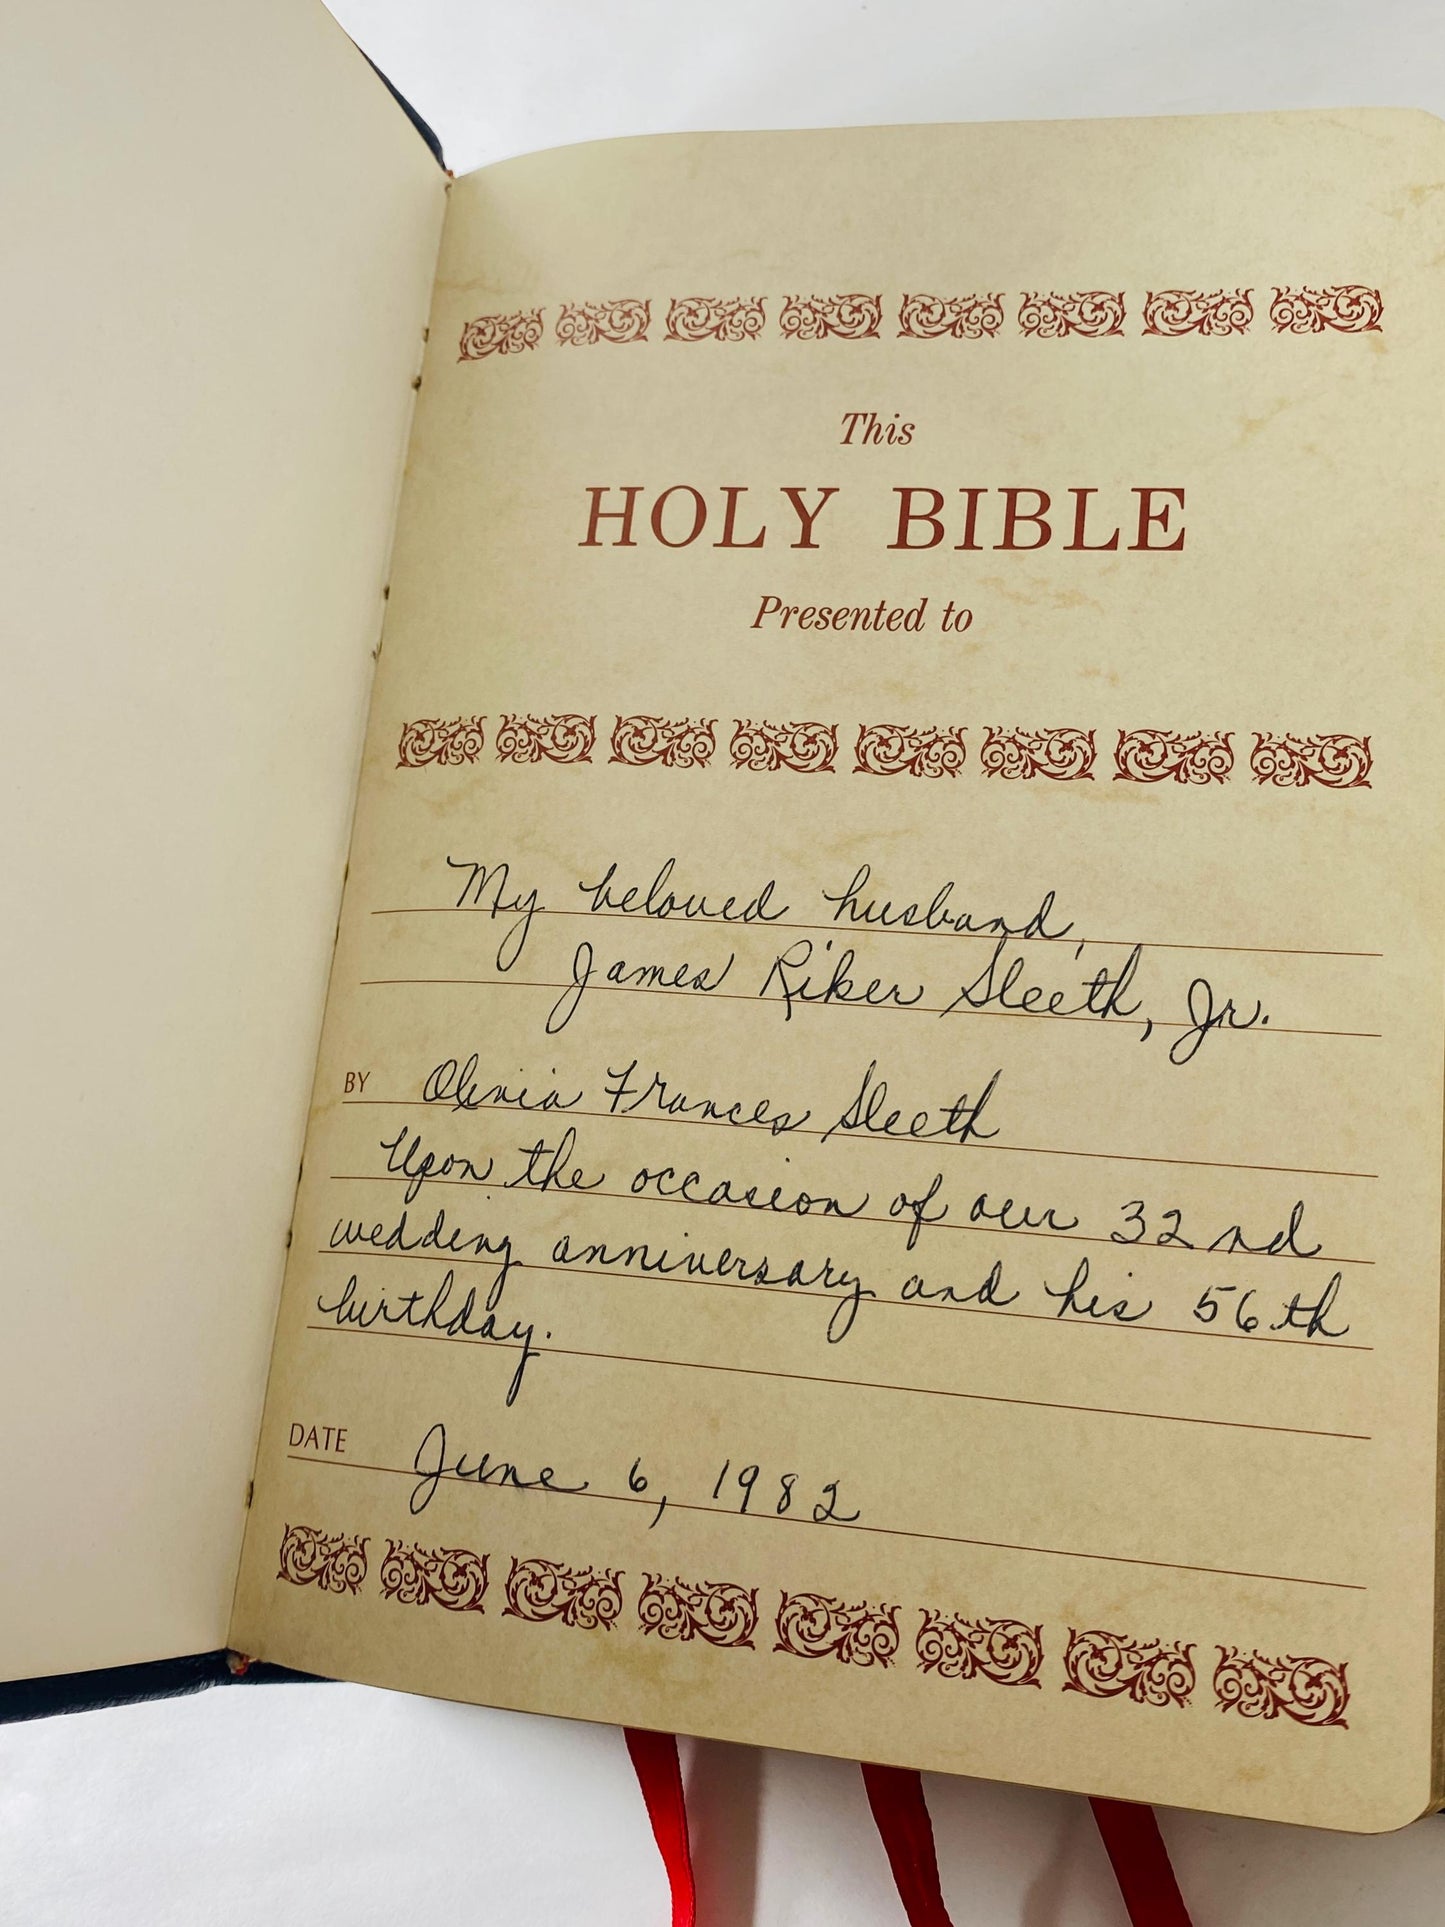 This
HOLY BIBLE
Presented to
My beloved husband,
James Riker Sleeth, Jr.
BY Olivia Frances Sleeth
Upon the occasion of our 32nd
wedding anniversary and his 56th
birthday.
DATE June 6, 1982